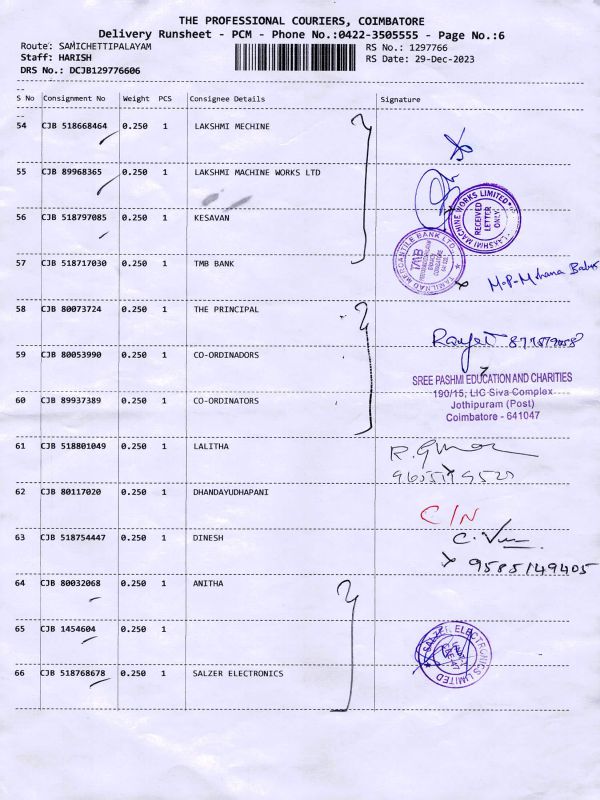 THE PROFESSIONAL COURIERS, COIMBATORE
Delivery Runsheet - PCM - Phone No.:0422-3505555 - Page No.:6
Route: SAMICHETTIPALAYAM RS No.: 1297766
Staff: HARISH RS Date: 29-Dec-2023
DRS No.: DCJB129776606
S No Consignment No Weight PCS Consignee Details Signature
54 CJB 518668464 0.250 1 LAKSHMI MECHINE
55 CJB 89968365 0.250 1 LAKSHMI MACHINE WORKS LTD
LAKSHMI MACHINE WORKS LIMITED
RECEIVED
LETTER
ONLY
56 CJB 518797085 0.250 1 KESAVAN
TAMILNAD MERCANTILE BANK LTD
TMB
57 CJB 518717030 0.250 1 TMB BANK
M.P. Mohana Babu
58 CJB 80073724 0.250 1 THE PRINCIPAL
59 CJB 80053990 0.250 1 CO-ORDINADORS
SREE PASHMI EDUCATION AND CHARITIES
190/15, LIC Siva Complex
Jothipuram (Post)
Coimbatore - 641047
60 CJB 89937389 0.250 1 CO-ORDINATORS
61 CJB 518801049 0.250 1 LALITHA
62 CJB 80117020 0.250 1 DHANDAYUDHAPANI
C/N
63 CJB 518754447 0.250 1 DINESH
9585149405
64 CJB 80032068 0.250 1 ANITHA
65 CJB 1454604 0.250 1
66 CJB 518768678 0.250 1 SALZER ELECTRONICS
SALZER ELECTRONICS LIMITED